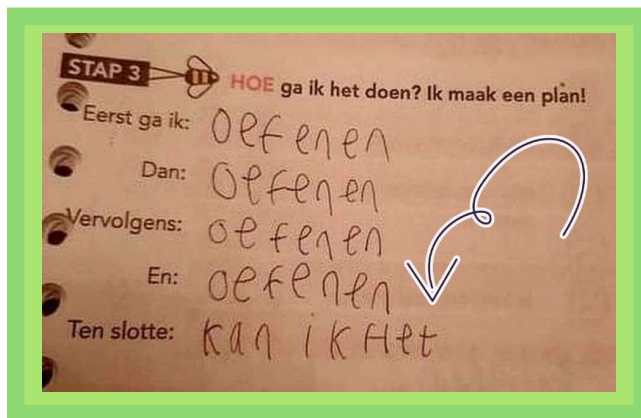 STAP 3 HOE ga ik het doen? Ik maak een plan!
Eerst ga ik: oefenen
Dan: oefenen
Vervolgens: oefenen
En: oefenen
Ten slotte: kan ik het